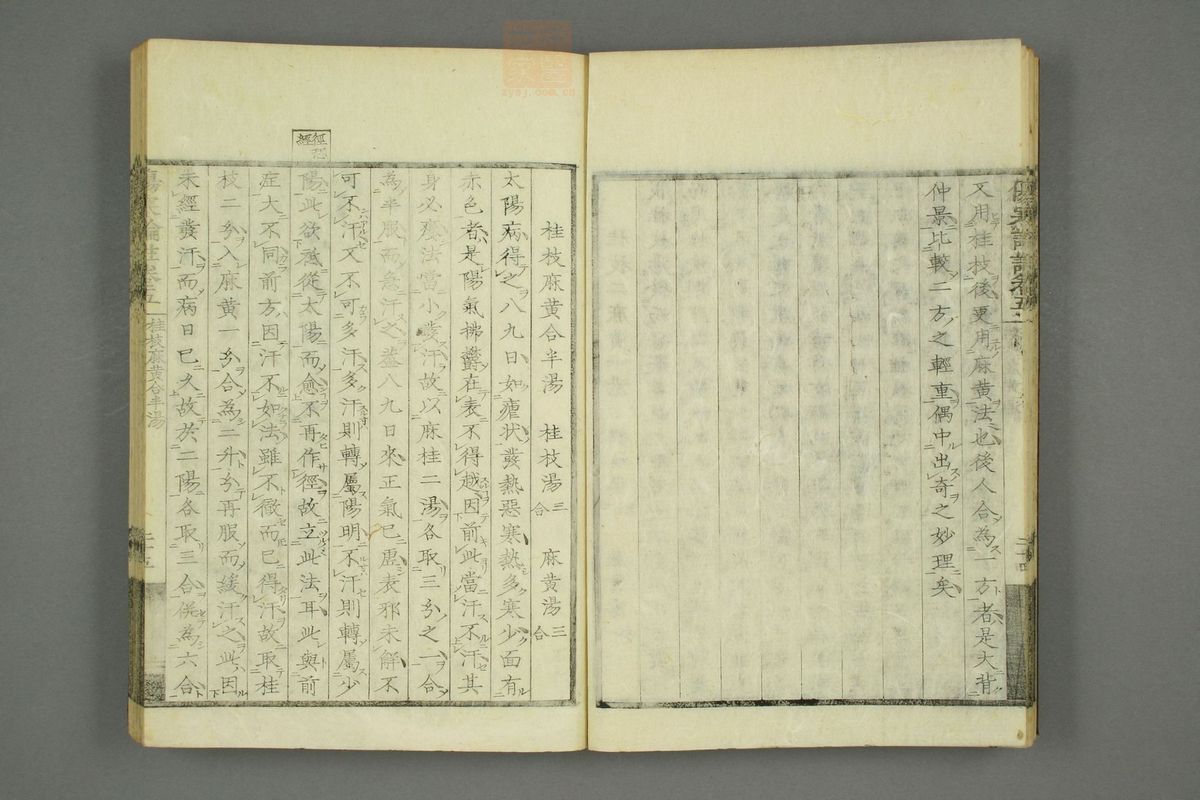 又用桂枝後更用麻黄法也後人合為一方者是大背
仲景比較二方之輕重偶中出奇之妙理矣
桂枝麻黄合半湯 桂枝湯三合 麻黄湯三合
太陽病得之八九日如瘧状發熱惡寒熱多寒少面有
赤色者是陽氣拂欝在表不得越因前此當汗不汗其
身必癢法當小發汗故以麻桂二湯各取三分之一合
為半服而急汗之蓋八九日來正氣已虛表邪未解不
可不汗又不可多汗多汗則轉屬陽明不汗則轉屬少
陽此欲其從太陽而愈不再作徑故立此法耳此與前
症大不同前方因汗不如法雖不徹而已得汗故取桂
枝二分入麻黄一分合為二升分再服而緩汗之此因
未經發汗而病日已久故於二陽各取三合併為六合
傷寒論註卷五 桂枝麻黄合半湯
zysj.com.cn